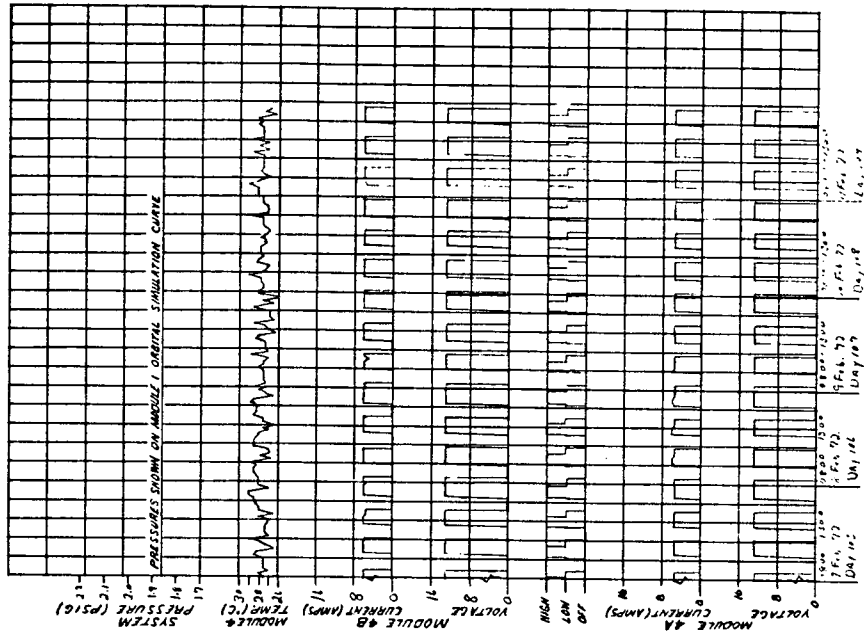 PRESSURES SHOWN ON MODULE 1 ORBITAL SIMULATION CURVE
SYSTEM
PRESSURE (PSIG)
2.1
2.0
1.9
1.8
1.7
MODULE 4
TEMP. (°C)
MODULE 4B
CURRENT (AMPS)
16
8
0
VOLTAGE
16
8
0
HIGH
LOW
OFF
MODULE 4A
CURRENT (AMPS)
16
8
0
VOLTAGE
16
8
0
7 Feb. 72
DAY 105
0800 1200
Feb. 72
DAY 106
0800 1200
9 Feb. 72
DAY 107
Feb 72
Day 108
Feb. 72